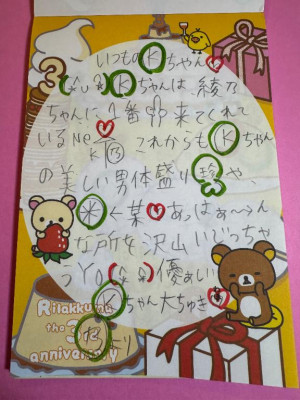 いつものKちゃん
Kちゃんは、綾乃
ちゃんに1番 来てくれて
いるNe
これからもKちゃん
の美しい男体盛り珍や、
米←菜 あっはぁ〜ん
な所を沢山いじっちゃ
うYO 優ぁしい
Kちゃん大ちゅき
より
Rilakkuma
the 3
anniversary